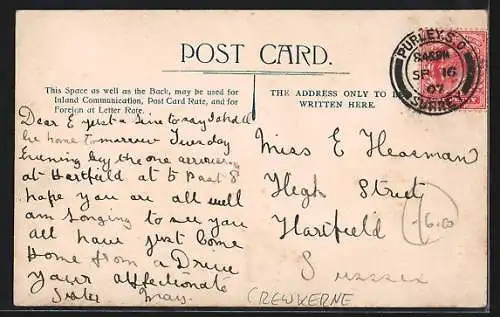 POST CARD.
This Space as well as the Back, may be used for
Inland Communication, Post Card Rate, and for
Foreign at Letter Rate.
THE ADDRESS ONLY TO BE
WRITTEN HERE.
PURLEY. S.O
SP 16
07
SURREY
Dear E just a line to say I shall
be home tomorrow Tuesday
Evening by the one arriving
at Hartfield at 5 Past 8
hope you are all well
am longing to see you
all have just come
home from a Drive
your affectionate
Sister Mary.
Miss E Heasman
High Street
Hartfield
Sussex
6.00
CREWKERNE